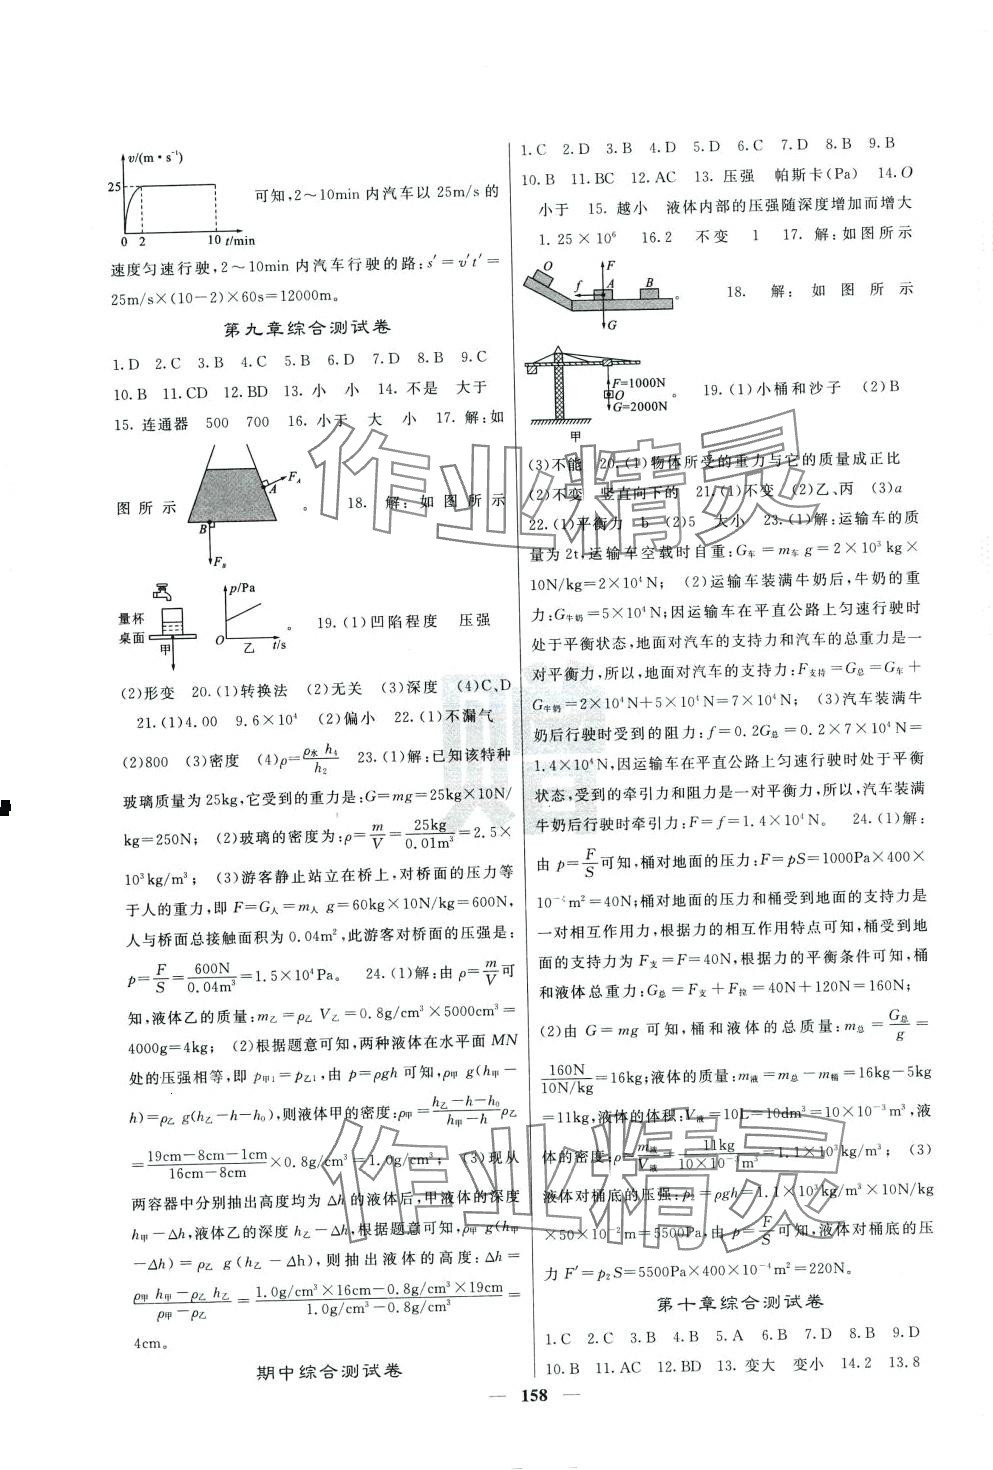 v/(m·s⁻¹)
25
0 2 10 t/min
可知,2～10min 内汽车以 25m/s 的
速度匀速行驶,2～10min 内汽车行驶的路:s′=v′t′=
25m/s×(10-2)×60s=12000m。
第九章综合测试卷
1.D 2.C 3.B 4.C 5.B 6.D 7.D 8.B 9.C
10.B 11.CD 12.BD 13.小 小 14.不是 大于
15.连通器 500 700 16.小于 大 小 17.解:如
图所示
F_A
A
B
F_B
。 18. 解: 如 图 所 示
量杯
桌面
甲
p/Pa
O 乙 t/s
。 19.(1)凹陷程度 压强
(2)形变 20.(1)转换法 (2)无关 (3)深度 (4)C、D
21.(1)4.00 9.6×10⁴ (2)偏小 22.(1)不漏气
(2)800 (3)密度 (4)ρ=ρ水 h₄/h₂ 23.(1)解:已知该特种
玻璃质量为25kg,它受到的重力是:G=mg=25kg×10N/
kg=250N; (2)玻璃的密度为:ρ=m/V=25kg/0.01m³=2.5×
10³kg/m³; (3)游客静止站立在桥上,对桥面的压力等
于人的重力,即 F=G人=m人 g=60kg×10N/kg=600N,
人与桥面总接触面积为0.04m²,此游客对桥面的压强是:
p=F/S=600N/0.04m²=1.5×10⁴Pa。 24.(1)解:由ρ=m/V可
知,液体乙的质量:m乙=ρ乙 V乙=0.8g/cm³×5000cm³=
4000g=4kg; (2)根据题意可知,两种液体在水平面 MN
处的压强相等,即 p甲1=p乙1,由 p=ρgh 可知,ρ甲 g(h甲-
h)=ρ乙 g(h乙-h-h₀),则液体甲的密度:ρ甲=(h乙-h-h₀)/(h甲-h) ρ乙
=(19cm-8cm-1cm)/(16cm-8cm)×0.8g/cm³=1.0g/cm³; (3)现从
两容器中分别抽出高度均为 Δh 的液体后,甲液体的深度
h甲-Δh,液体乙的深度 h乙-Δh,根据题意可知,ρ甲 g(h甲
-Δh)=ρ乙 g(h乙-Δh),则抽出液体的高度:Δh=
(ρ甲 h甲-ρ乙 h乙)/(ρ甲-ρ乙)=(1.0g/cm³×16cm-0.8g/cm³×19cm)/(1.0g/cm³-0.8g/cm³)=
4cm。
期中综合测试卷
1.C 2.D 3.B 4.D 5.D 6.C 7.D 8.B 9.B
10.B 11.BC 12.AC 13.压强 帕斯卡(Pa) 14.O
小于 15.越小 液体内部的压强随深度增加而增大
1.25×10⁶ 16.2 不变 1 17.解:如图所示
O
F
f
A
B
G
。 18. 解: 如 图 所 示
F=1000N
O
G=2000N
甲
。 19.(1)小桶和沙子 (2)B
(3)不能 20.(1)物体所受的重力与它的质量成正比
(2)不变 竖直向下的 21.(1)不变 (2)乙、丙 (3)a
22.(1)平衡力 b (2)5 大小 23.(1)解:运输车的质
量为2t,运输车空载时自重:G车=m车 g=2×10³kg×
10N/kg=2×10⁴N; (2)运输车装满牛奶后,牛奶的重
力:G牛奶=5×10⁴N;因运输车在平直公路上匀速行驶时
处于平衡状态,地面对汽车的支持力和汽车的总重力是一
对平衡力,所以,地面对汽车的支持力:F支持=G总=G车+
G牛奶=2×10⁴N+5×10⁴N=7×10⁴N; (3)汽车装满牛
奶后行驶时受到的阻力:f=0.2G总=0.2×7×10⁴N=
1.4×10⁴N;因运输车在平直公路上匀速行驶时处于平衡
状态,受到的牵引力和阻力是一对平衡力,所以,汽车装满
牛奶后行驶时牵引力:F=f=1.4×10⁴N。 24.(1)解:
由 p=F/S可知,桶对地面的压力:F=pS=1000Pa×400×
10⁻⁴m²=40N;桶对地面的压力和桶受到地面的支持力是
一对相互作用力,根据力的相互作用特点可知,桶受到地
面的支持力为 F支=F=40N,根据力的平衡条件可知,桶
和液体总重力:G总=F支+F拉=40N+120N=160N;
(2)由 G=mg 可知,桶和液体的总质量:m总=G总/g=
160N/10N/kg=16kg;液体的质量:m液=m总-m桶=16kg-5kg
=11kg,液体的体积:V液=10L=10dm³=10×10⁻³m³,液
体的密度:ρ=m液/V液=11kg/10×10⁻³m³=1.1×10³kg/m³; (3)
液体对桶底的压强:p₂=ρgh=1.1×10³kg/m³×10N/kg
×50×10⁻²m=5500Pa,由 p=F/S可知,液体对桶底的压
力 F′=p₂S=5500Pa×400×10⁻⁴m²=220N。
第十章综合测试卷
1.C 2.C 3.B 4.B 5.A 6.B 7.D 8.B 9.D
10.B 11.AC 12.BD 13.变大 变小 14.2 13.8
— 158 —
作业精灵
作业精灵